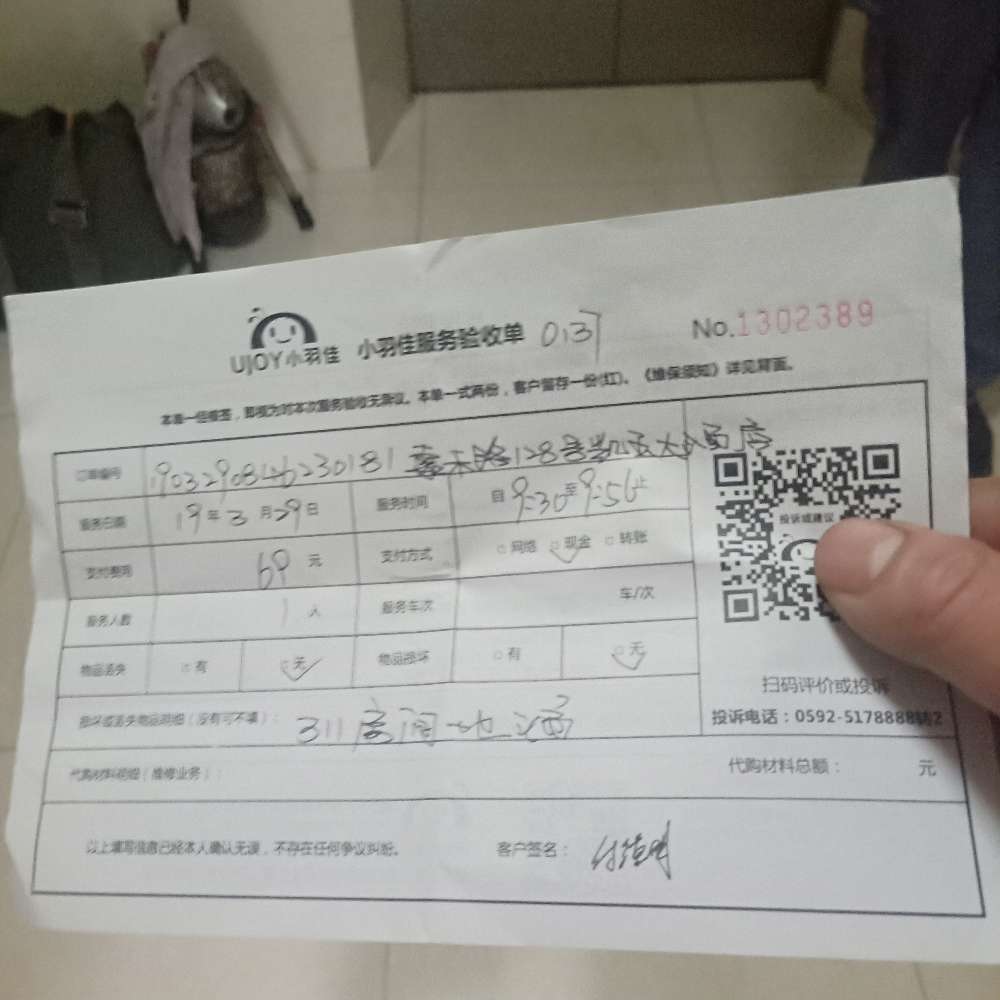 UJOY小羽佳 小羽佳服务验收单 037 No.1302389
本单一经接签，即视为对本次服务验收无异议。本单一式两份，客户留存一份(红)。《维保须知》详见背面。
订单编号 190329084623018 1 128号 大 酒店
服务日期 19年3月29日 服务时间 自9:30至9:56止
投诉或建议
支付费用 69元 支付方式 网络 现金 转账
服务人数 1人 服务车次 车/次
物品丢失 有 无 物品损坏 有 无
扫码评价或投诉
损坏或丢失物品明细（没有可不填）： 311房间地漏
投诉电话：0592-5178888转2
代购材料明细（维修业务）： 代购材料总额： 元
以上填写信息已经本人确认无误，不存在任何争议纠纷。 客户签名：